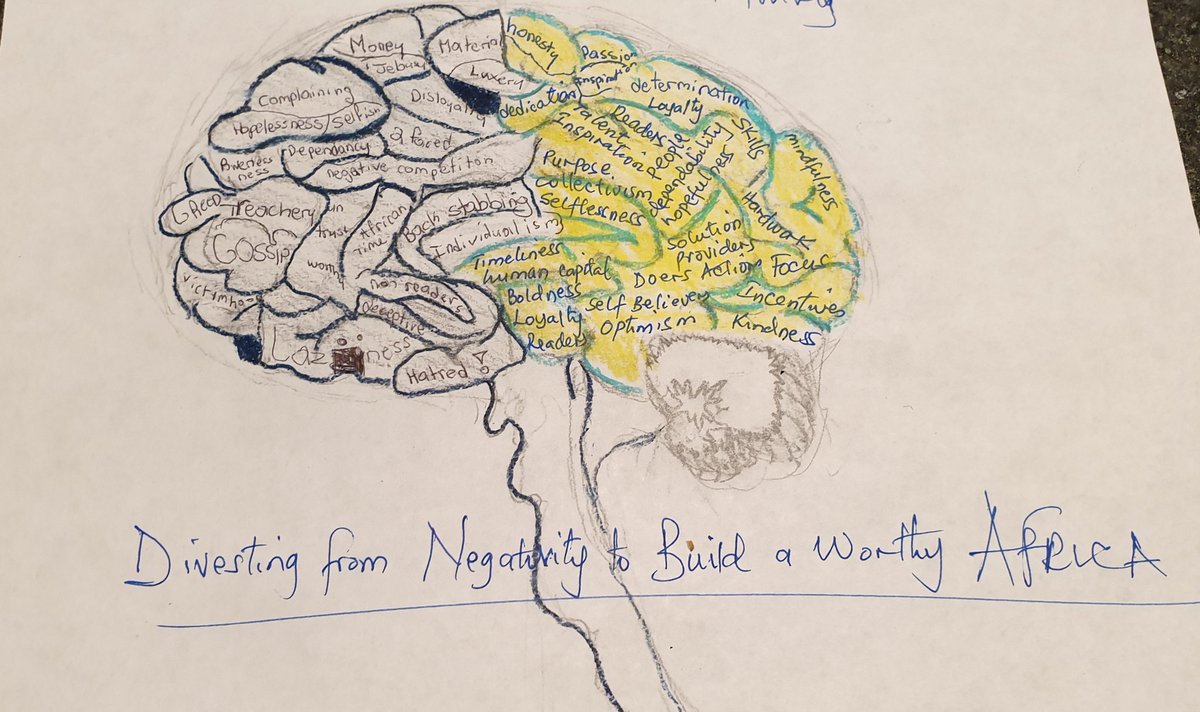 Money
Jebuu
Material
Luxery
Complaining
Disloyalty
Hopelessness/selfish
2 faced
Dependancy
negative competiton
GREED
Treachery
African
time
Back stabbing
Individualism
Gossip
non readers
deceptive
Laziness
Hatred
honesty
Passion
Inspirati
determination
dedication
Loyalty
Talent
Readers
Skills
Inspiration
people
dependability
mindfulness
Purpose
hopefulness
collectivism
Selflessness
Hardwork
Solution
providers
Timeliness
human capital
Doers Action
Focus
Boldness
Self Believers
Incentives
Loyalty
Optimism
Kindness
Readers
Divesting from Negativity to Build a Worthy AFRICA